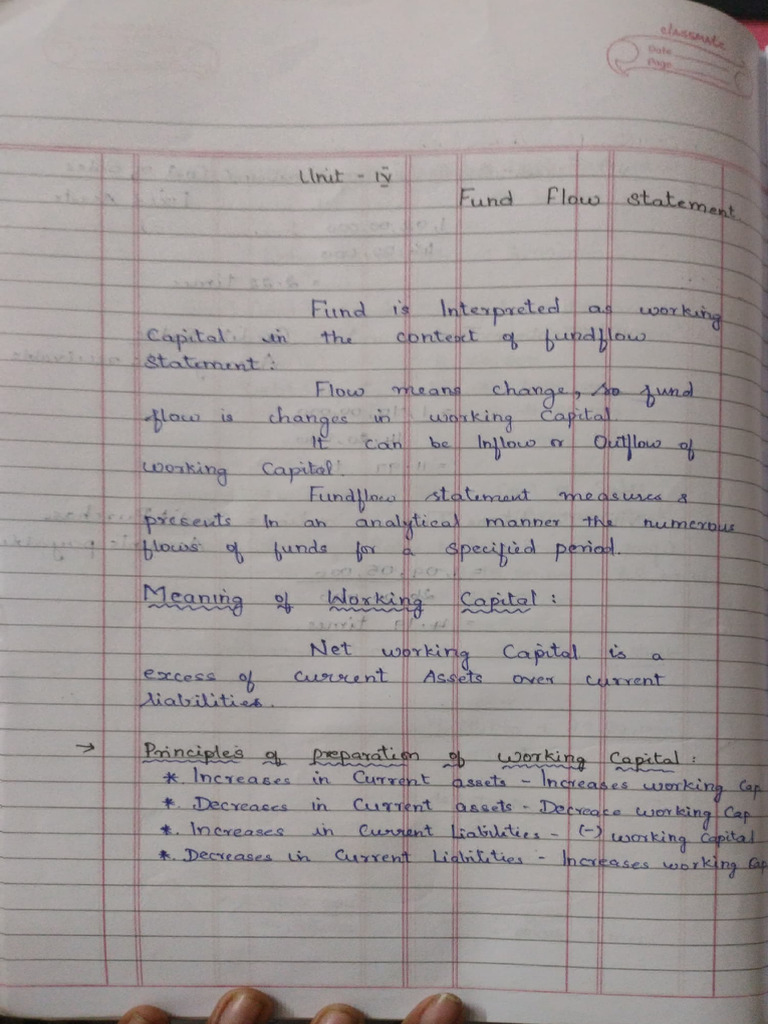 classmate
Date
Page
Unit - IV
Fund Flow statement
Fund is Interpreted as working
Capital in the context of fundflow
statement:
Flow means change, so fund
flow is changes in working Capital.
It can be Inflow or Outflow of
working Capital.
Fundflow statement measures &
presents In an analytical manner the numerous
flows of funds for a specified period.
Meaning of Working Capital:
Net working Capital is a
excess of current Assets over current
liabilities.
→ Principles of preparation of working Capital:
*. Increases in Current assets - Increases working Cap
*. Decreases in Current assets - Decrease working Cap
*. Increases in Current Liabilities - (-) working Capital
*. Decreases in Current Liabilities - Increases working Cap